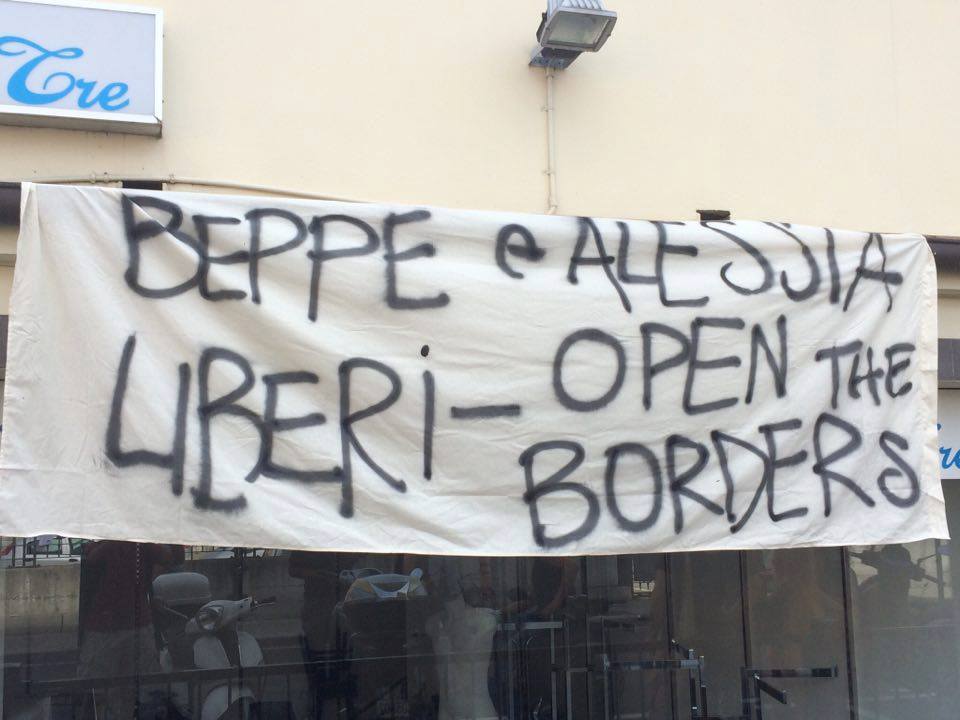 Tre
BEPPE e ALESSIA
LIBERi - OPEN THE
BORDERS